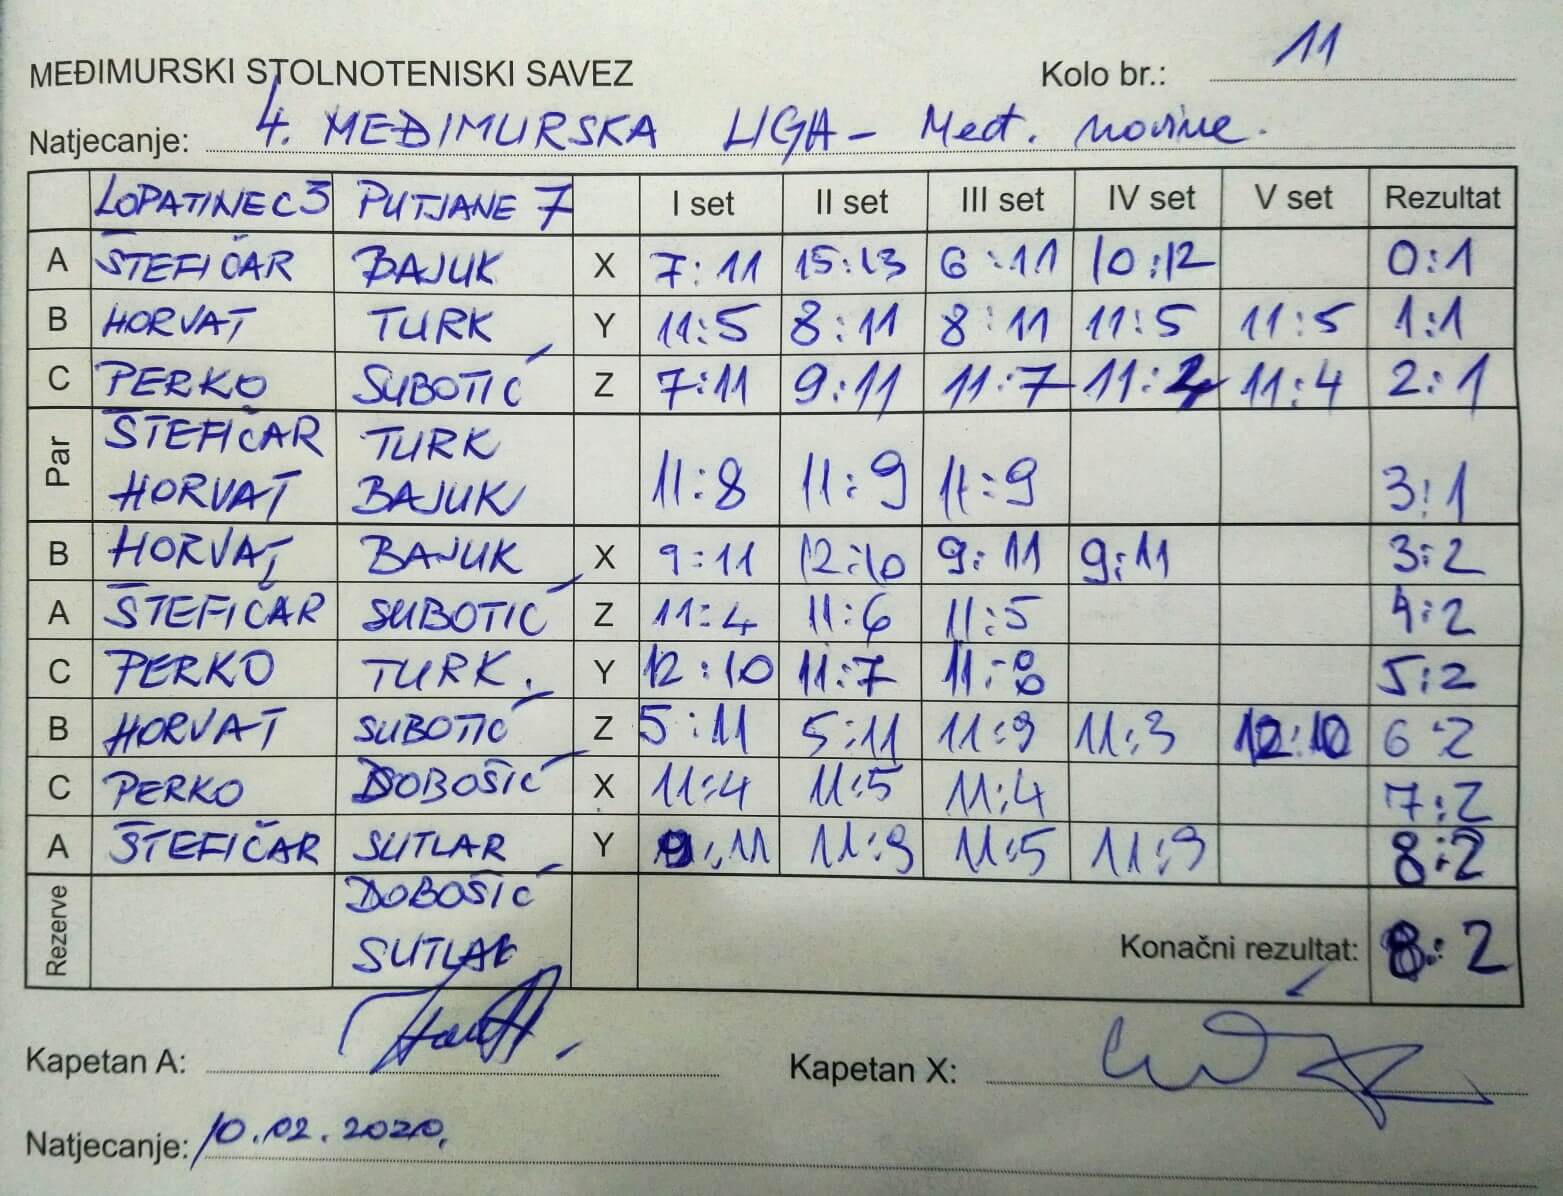 MEĐIMURSKI STOLNOTENISKI SAVEZ Kolo br.: 11
Natjecanje: 4. MEĐIMURSKA LIGA - Međ. novine.
LOPATINEC 3 PUTJANE 7 I set II set III set IV set V set Rezultat
A ŠTEFIČAR BAJUK X 7:11 15:13 6:11 10:12 0:1
B HORVAT TURK Y 11:5 8:11 8:11 11:5 11:5 1:1
C PERKO SUBOTIĆ Z 7:11 9:11 11:7 11:2 11:4 2:1
Par ŠTEFIČAR TURK
HORVAT BAJUK 11:8 11:9 11:9 3:1
B HORVAT BAJUK X 9:11 12:10 9:11 9:11 3:2
A ŠTEFIČAR SUBOTIĆ Z 11:4 11:6 11:5 4:2
C PERKO TURK. Y 12:10 11:7 11:8 5:2
B HORVAT SUBOTIĆ Z 5:11 5:11 11:9 11:3 12:10 6:2
C PERKO DOBOŠIĆ X 11:4 11:5 11:4 7:2
A ŠTEFIČAR SUTLAR Y 9:11 11:9 11:5 11:9 8:2
Rezerve DOBOŠIĆ
SUTLAR
Konačni rezultat: 8:2
Kapetan A: Kapetan X:
Natjecanje: 10.02.2020.